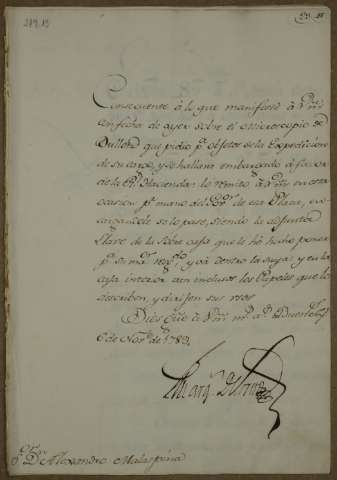 Consecuente à lo que manifesté à Vm.
con fecha de ayer sobre el microscopio de
que pidio pª. objetos de la Expedicion
de su cargo, y se hallava embargado à favor
de la Rl. Hacienda: lo remito à Vm. en esta
ocasion pr. mano del Govr. de esa Plaza, en-
cargandole se lo pase, siendo la adjunta
llave de la sobre caja que le hé hecho poner
pª. su maor. y và dentro la suya: y en la
caja interior van inclusos los Papeles que lo
describen, y dirijen sus usos.
Dios gue. à Vm. ms. as.
6 de Novre. de 1788.
Sor. Dn. Alexandro Malaspina